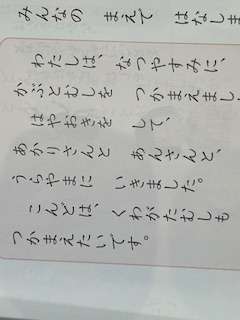 みんなの まえで はなしま
わたしは、なつやすみに、
かぶとむしを つかまえまし
はやおきを して、
あかりさんと あんさんと、
うらやまに いきました。
こんどは、くわがたむしも
つかまえたいです。